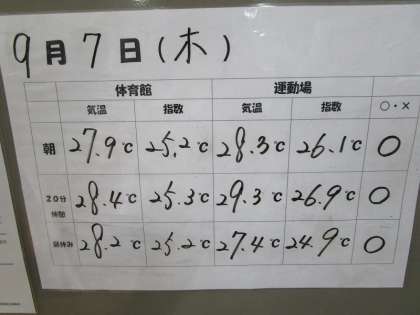 9月7日(木)
体育館 運動場
気温 指数 気温 指数 ○・×
朝 27.9℃ 25.2℃ 28.3℃ 26.1℃ ○
20分休憩 28.4℃ 25.3℃ 29.3℃ 26.9℃ ○
昼休み 28.2℃ 25.2℃ 27.4℃ 24.9℃ ○